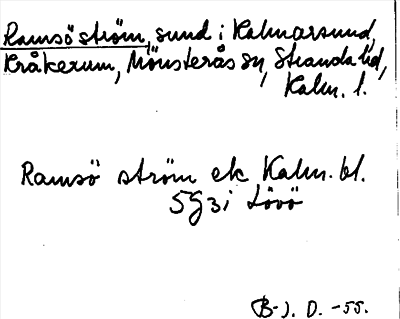 Ramsö ström, sund i Kalmarsund,
Kråkerum, Mönsterås sn, Stranda hd,
Kalm. l.
Ramsö ström ek Kalm. bl.
5G3i Lövö
B-J. D. -55.